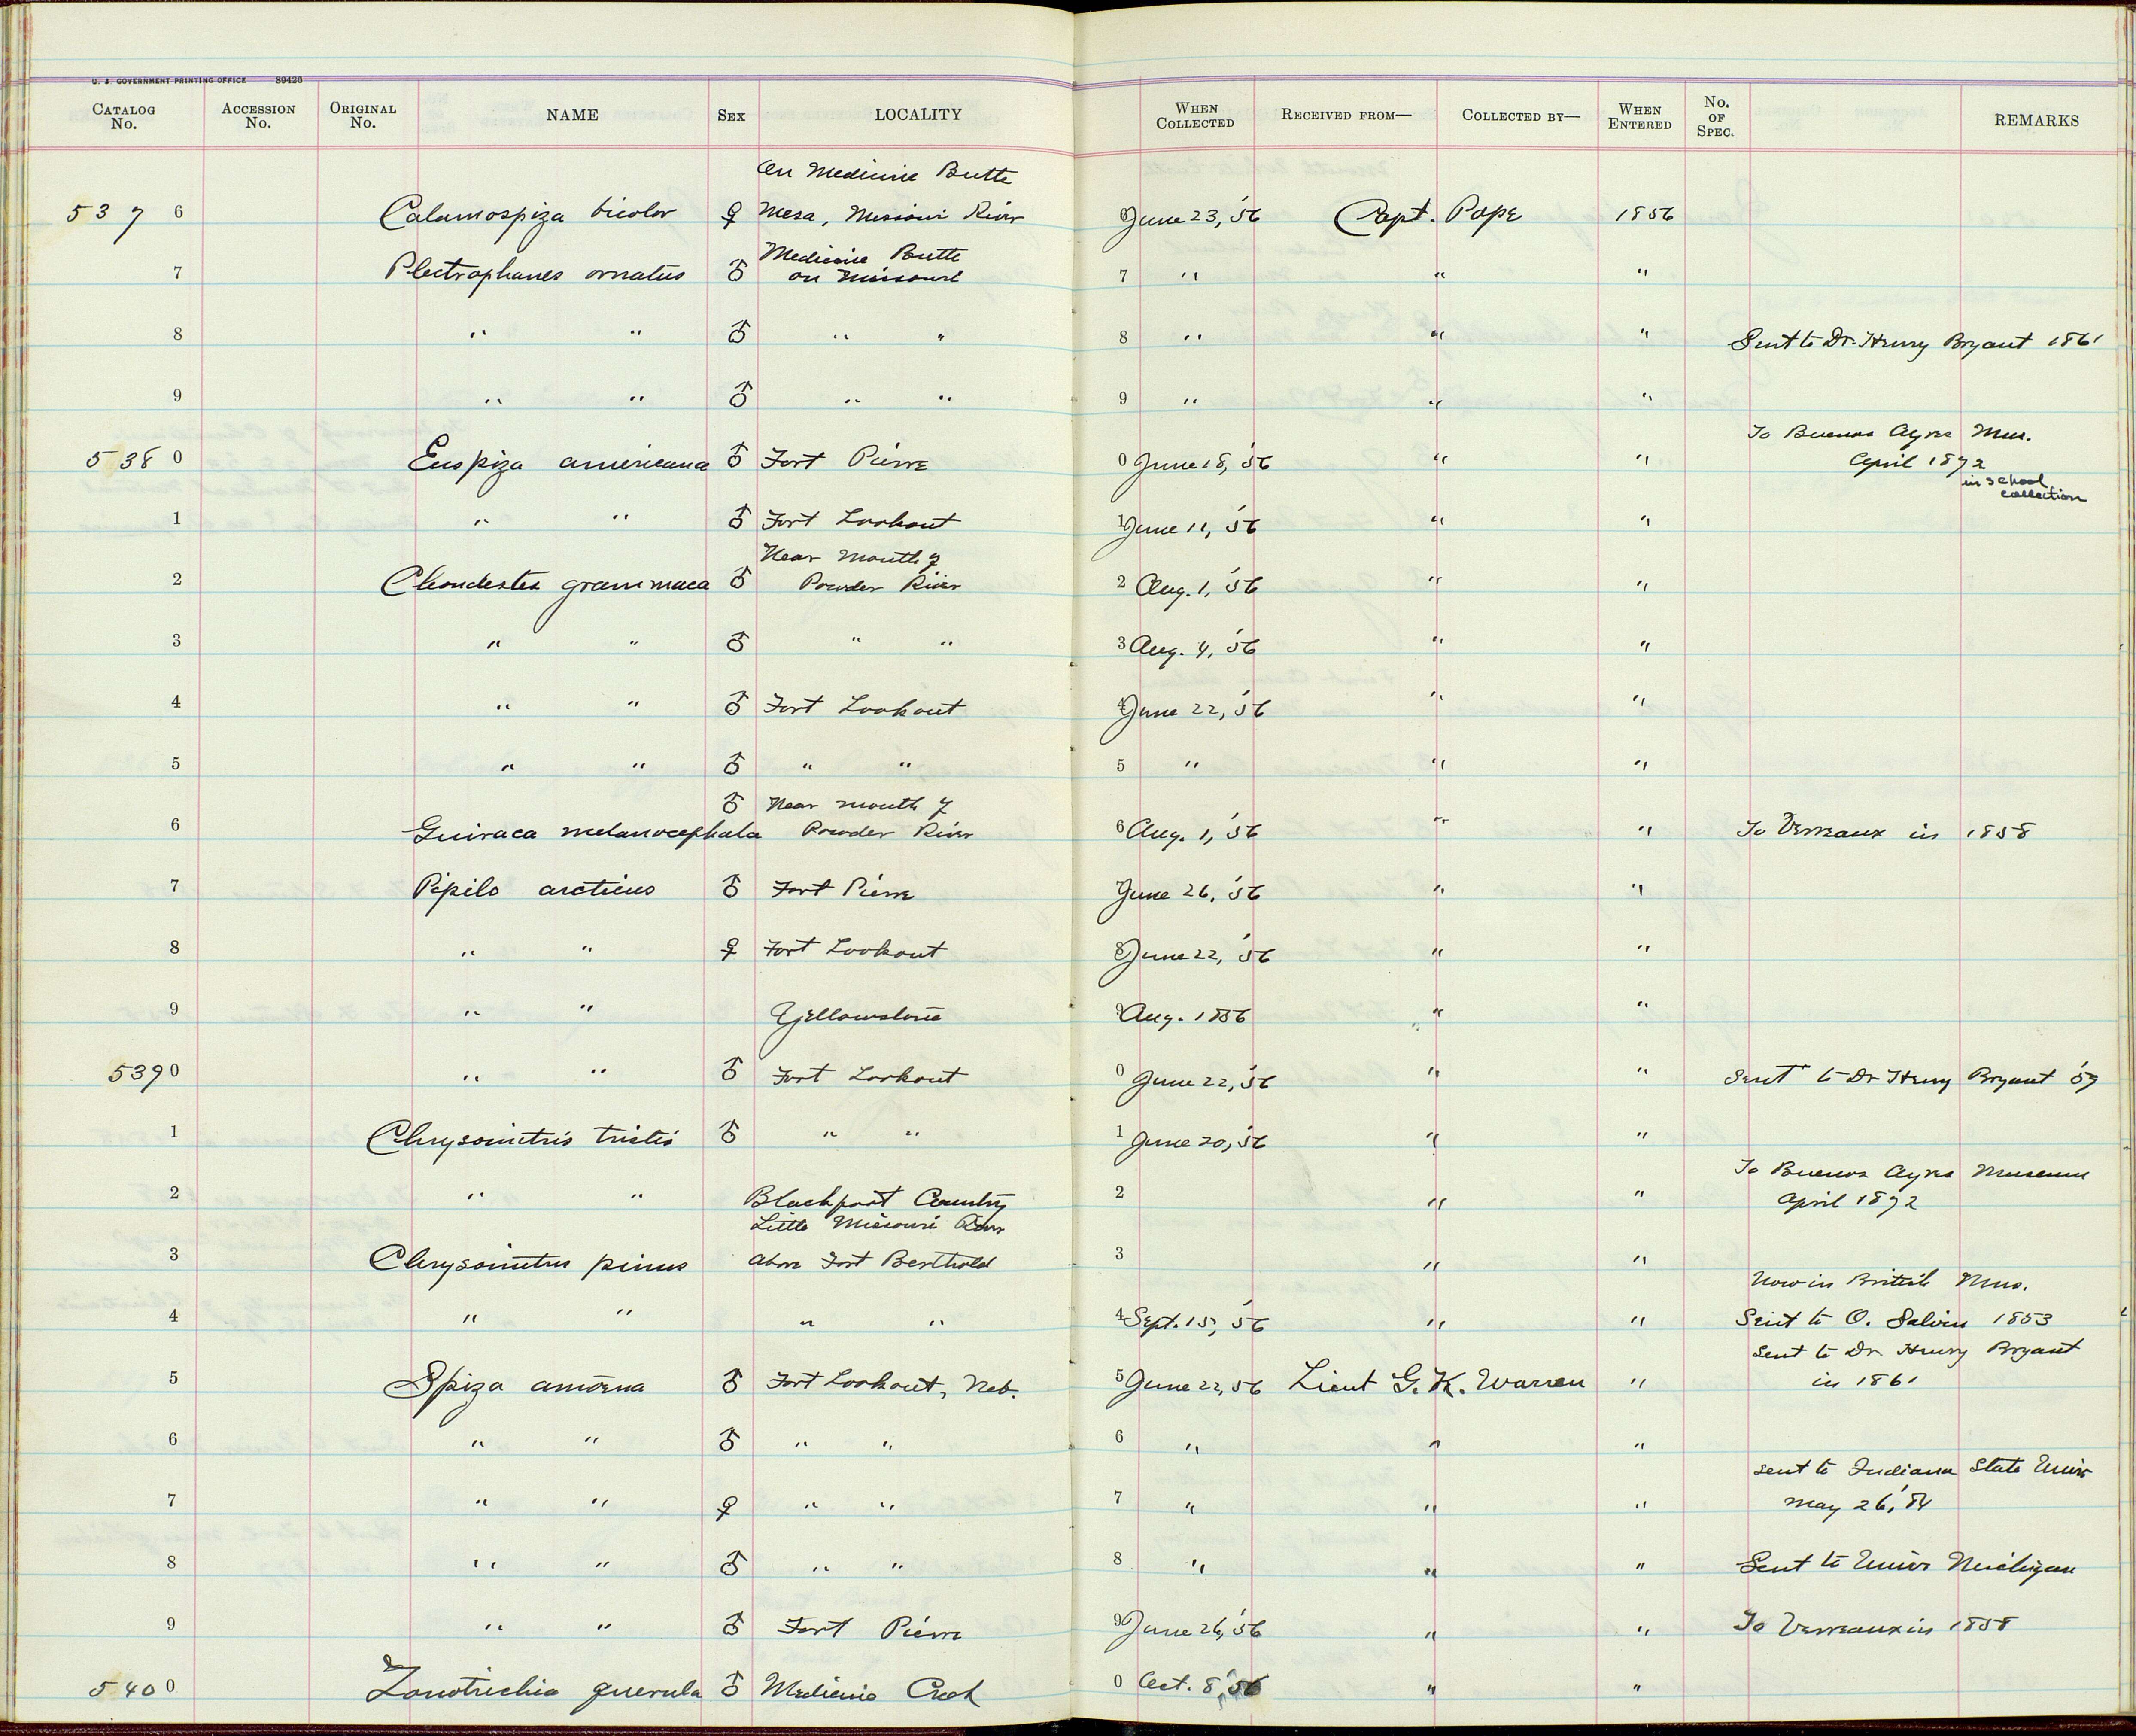 U. S. GOVERNMENT PRINTING OFFICE 89426
CATALOG No. ACCESSION No. ORIGINAL No. NAME SEX LOCALITY WHEN COLLECTED RECEIVED FROM— COLLECTED BY— WHEN ENTERED No. OF SPEC. REMARKS
On Medicine Butte
5376 Calamospiza bicolor ♀ Mesa, Missouri River 6 June 23, '56 Capt. Pope 1856
Medicine Butte
7 Plectrophanes ornatus ♂ on Missouri 7 " " "
8 " " ♂ " " 8 " " " Sent to Dr. Henry Bryant 1861
9 " " ♂ " " 9 " " "
To Buenos Ayres Mus.
5380 Euspiza americana ♂ Fort Pierre 0 June 18, '56 " " April 1892
in school
collection
1 " " ♂ Fort Lookout 1 June 11, '56 " "
Near mouth of
2 Chondestes grammaca ♂ Powder River 2 Aug. 1, '56 " "
3 " " ♂ " " 3 Aug. 4, '56 " "
4 " " ♂ Fort Lookout 4 June 22, '56 " "
5 " " ♂ " " 5 " " "
♂ Near mouth of
6 Guiraca melanocephala Powder River 6 Aug. 1, '56 " " To Verreaux in 1858
7 Pipilo arcticus ♂ Fort Pierre 7 June 26, '56 " "
8 " " ♀ Fort Lookout 8 June 22, '56 " "
9 " " Yellowstone 9 Aug. 1856 " "
5390 " " ♂ Fort Lookout 0 June 22, '56 " " Sent to Dr Henry Bryant '59
1 Chrysomitris tristis ♂ " " 1 June 20, '56 " "
To Buenos Ayres Museum
2 " " Blackfoot Country 2 " " April 1892
Little Missouri River
3 Chrysomitris pinus above Fort Berthold 3 " "
Now in British Mus.
4 " " " " 4 Sept. 15, '56 " " Sent to O. Salvin 1853
Sent to Dr Henry Bryant
5 Spiza amoena ♂ Fort Lookout, Neb. 5 June 22, 56 Lieut G. K. Warren " in 1861
6 " " ♂ " " 6 " " "
sent to Indiana State Univ
7 " " ♀ " " 7 " " " May 26, '84
8 " " ♂ " " 8 " " " Sent to Univ Michigan
9 " " ♂ Fort Pierre 9 June 26, '56 " " To Verreaux in 1858
5400 Zonotrichia querula ♂ Medicine Creek 0 Oct. 8, '56 " "